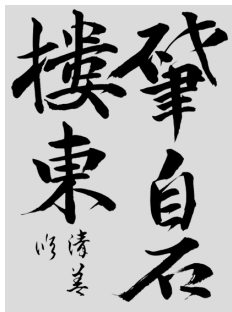 肇自石
樓東
清